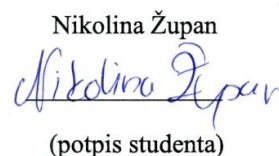 Nikolina Župan
Nikolina Župan
(potpis studenta)